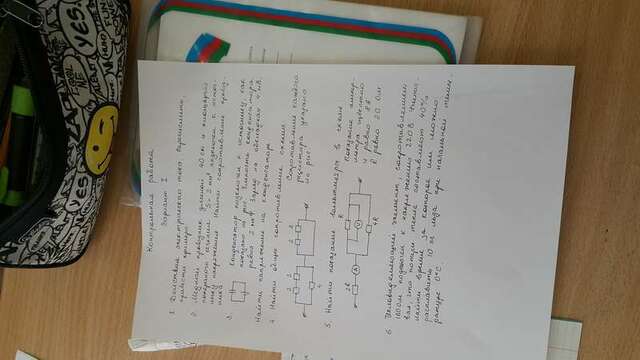 Контрольная работа
Вариант I
1. Действия электрического тока перечислить,
привести примеры
2. Медный проводник длиной 40 см и площадью
поперечного сечения мм² подключен к источ-
нику напряжения. Найти сопротивление
3. Конденсатор подключен к источнику как
показано на рис. Емкость конденсатора
равна 2 мкФ заряд на обкладках 4 мкКл.
Найти напряжение на конденсаторе
4. Найти общее сопротивление схемы
Сопротивление каждого
резистора указано
на рис.
2 2 2 2
4
5. Найти показание вольтметра в схеме
Показание ампер-
метра известно
и равно 8А
R равно 20 Ом
R
2R A V
4R
6. Тепловыделяющий элемент, сопротивлением
160 Ом подключен к напряжению 220 В. Учиты-
вая, что потери тепла составляют 40%
найти время за которое им можно
расплавить 10 кг льда при начальной темпе-
ратуре 0°C.
YES!
COOL
YES!